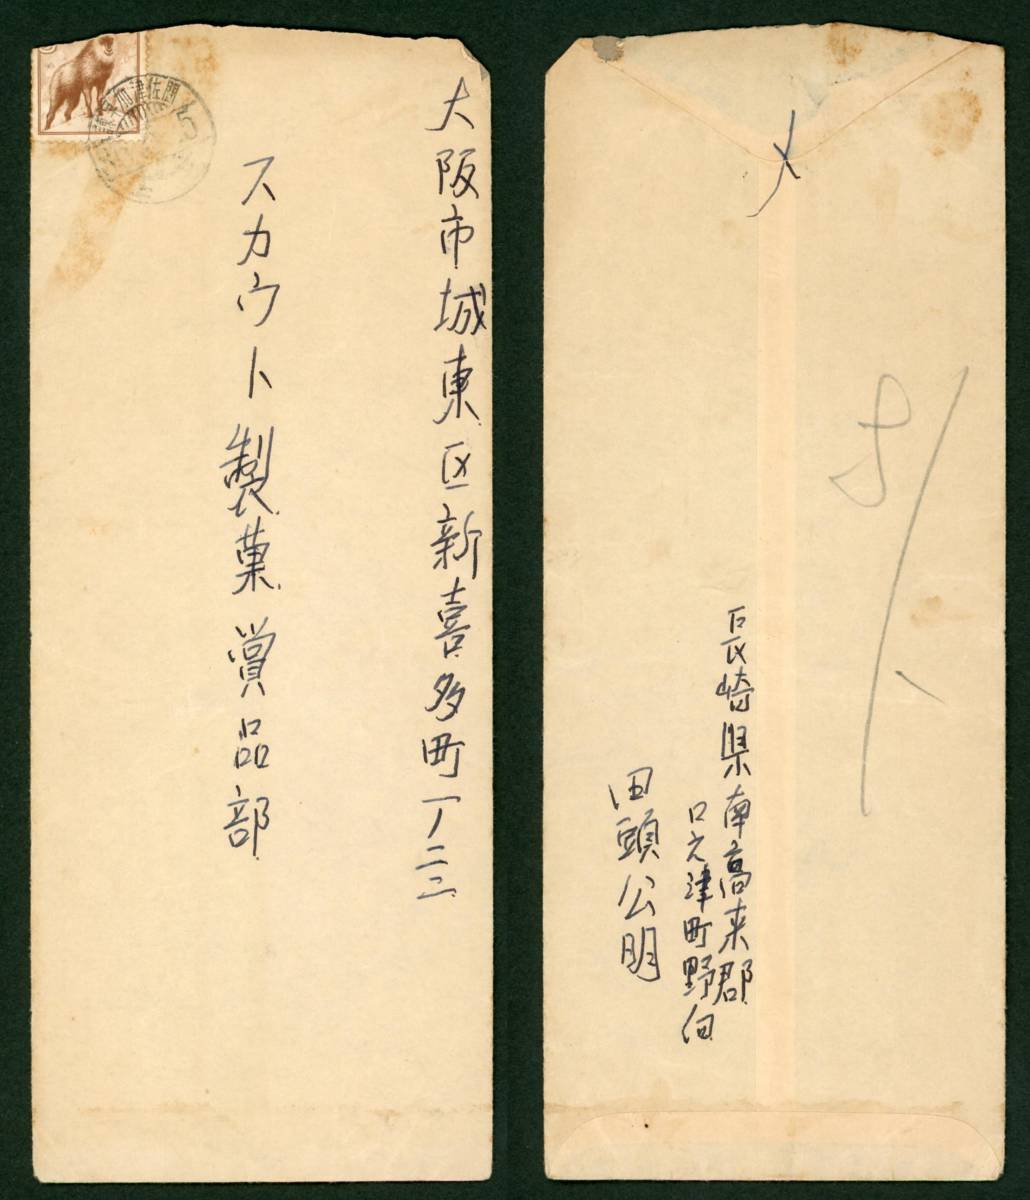 大阪市城東区新喜多町一ノ二三
スカウト製菓賞品部
加津佐
〆
長崎県南高来郡
口之津町野向
田頭公明